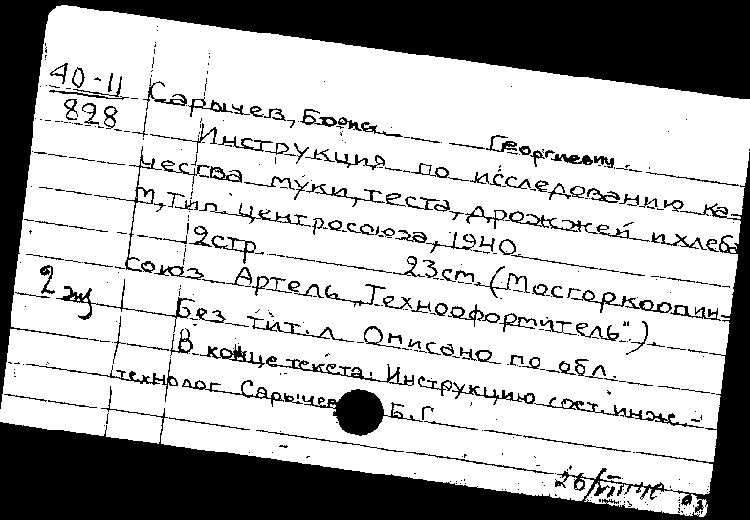 40-11
828
Сарычев, Борис Георгиевич.
Инструкция по исследованию ка-
чества муки, теста, дрожжей и хлеба
М, Тип. Центросоюза, 1940.
2стр. 23см. (Мосгоркоопин-
союз Артель „Технооформитель").
2 эк
Без тит. л. Описано по обл.
В конце текста: Инструкцию сост. инж.-
технолог Сарычев Б. Г.
26/VIII 40